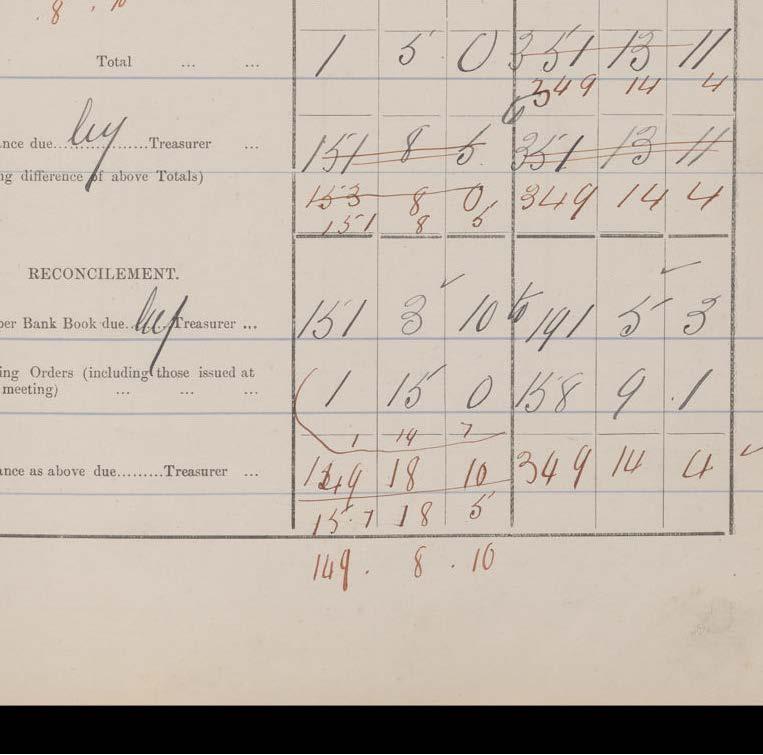 8 . 10
Total ... ... 1 5 0 351 13 11
349 14 4
nce due.... by ....Treasurer ... 151 8 5 351 13 11
ng difference of above Totals)
153 8 0 349 14 4
151 8 5
RECONCILEMENT.
per Bank Book due.. by ..Treasurer ... 151 3 10 191 5 3
ing Orders (including those issued at
meeting) ... ... ... 1 15 0 158 9 1
1 14 7
ance as above due.........Treasurer ... 149 18 10 349 14 4
157 18 5
149 . 8 . 10